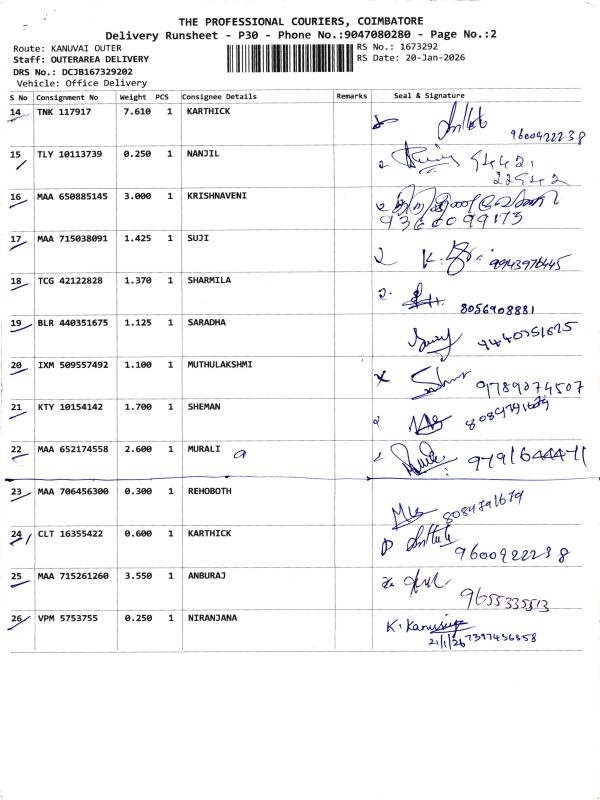 THE PROFESSIONAL COURIERS, COIMBATORE
Delivery Runsheet - P30 - Phone No.:9047080280 - Page No.:2
Route: KANUVAI OUTER RS No.: 1673292
Staff: OUTERAREA DELIVERY RS Date: 20-Jan-2026
DRS No.: DCJB167329202
Vehicle: Office Delivery
S No Consignment No Weight PCS Consignee Details Remarks Seal & Signature
14 TNK 117917 7.610 1 KARTHICK
9600922238
15 TLY 10113739 0.250 1 NANJIL
94421
22942
16 MAA 650885145 3.000 1 KRISHNAVENI
9360099173
17 MAA 715038091 1.425 1 SUJI
9943976445
18 TCG 42122828 1.370 1 SHARMILA
8056908881
19 BLR 440351675 1.125 1 SARADHA
20 IXM 509557492 1.100 1 MUTHULAKSHMI
9789074507
21 KTY 10154142 1.700 1 SHEMAN
8084791679
22 MAA 652174558 2.600 1 MURALI
9791644471
23 MAA 706456300 0.300 1 REHOBOTH
8084791679
24 CLT 16355422 0.600 1 KARTHICK
9600922238
25 MAA 715261260 3.550 1 ANBURAJ
9655335513
26 VPM 5753755 0.250 1 NIRANJANA
21/1/26 7397436358